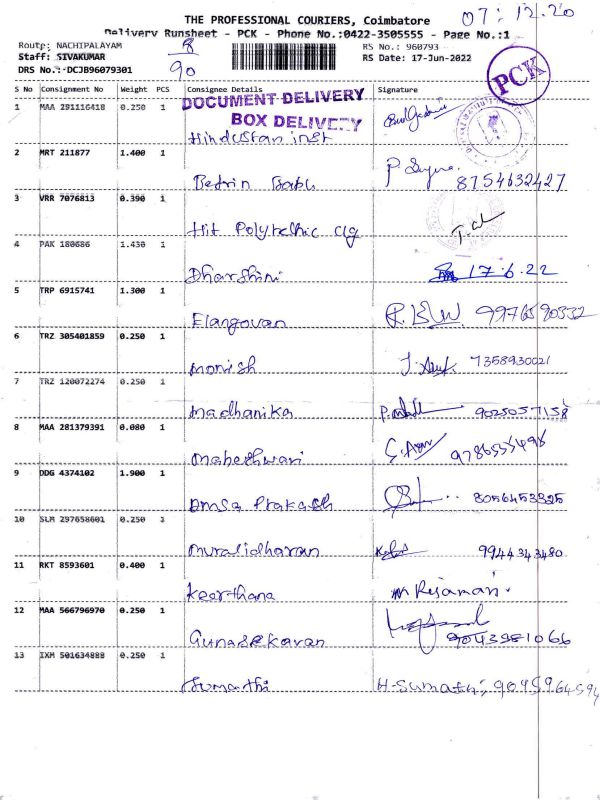 THE PROFESSIONAL COURIERS, Coimbatore
07:12.20
Delivery Runsheet - PCK - Phone No.:0422-3505555 - Page No.:1
Route: NACHIPALAYAM 8 RS No.: 960793
Staff: SIVAKUMAR RS Date: 17-Jun-2022
DRS No.: DCJB96079301 90
PCK
S No Consignment No Weight PCS Consignee Details Signature
1 MAA 281116418 0.250 1
DOCUMENT DELIVERY
BOX DELIVERY
Hindustan inst
2 MRT 211877 1.400 1
Bedrin Babu 8754632427
3 VRR 7076813 0.390 1
Hit Polytelhic clg
4 PAK 180686 1.430 1
Dharshini 17.6.22
5 TRP 6915741 1.300 1
Elangovan 9976590332
6 TRZ 305401859 0.250 1
monish 7358930021
7 TRZ 120072274 0.250 1
madhanika 9025057158
8 MAA 281379391 0.080 1
maheshwari
9 DDG 4374102 1.900 1
Dmsa Prakash 8056453325
10 SLM 297658601 0.250 1
muralidharan 9944343480
11 RKT 8593601 0.400 1
keerthana
12 MAA 566796970 0.250 1
Gunasekaran 9043981066
13 IXM 501634888 0.250 1
Sumathi H-Sumathi